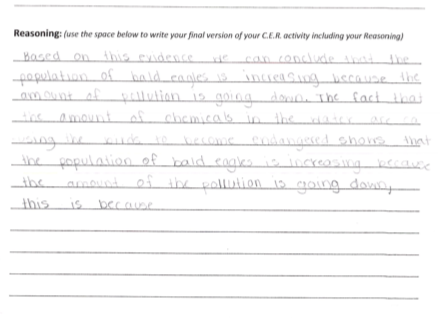 Reasoning: (use the space below to write your final version of your C.E.R. activity including your Reasoning)
Based on this evidence we can conclude that the
population of bald eagles is increasing because the
amount of pollution is going down. The fact that
the amount of chemicals in the water are ca
using the birds to become endangered shows that
the population of bald eagles is increasing because
the amount of the pollution is going down,
this is because